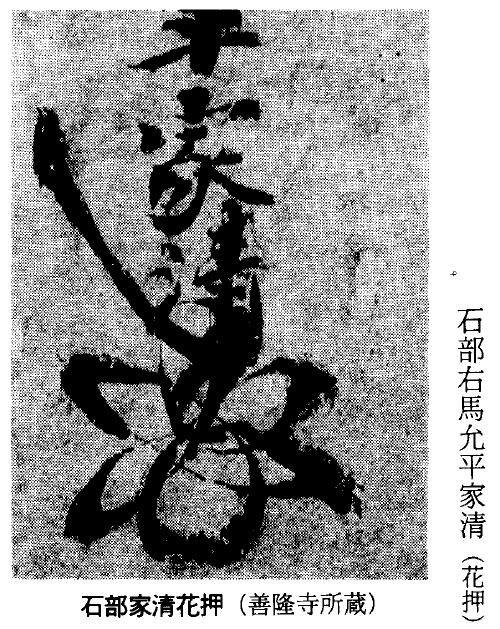 石部右馬允平家清（花押）
平家清
石部家清花押（善隆寺所蔵）